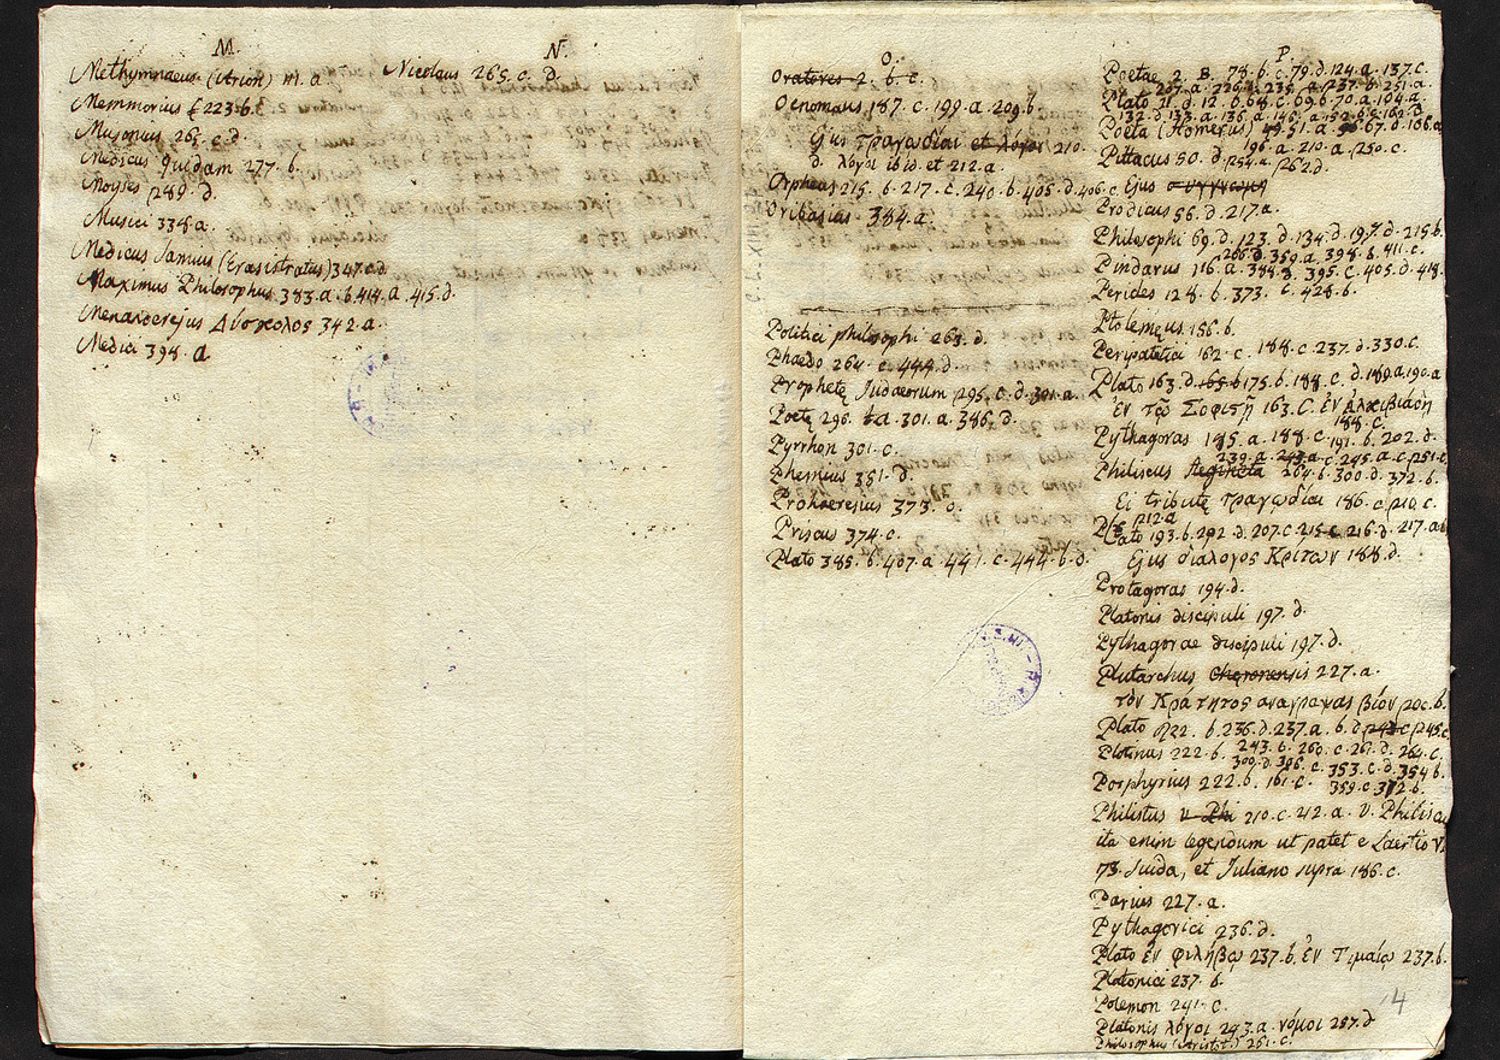 M.
Methymnaeus (Arion) m. a
Memmorius 223. b.
Musonius 265. c. d.
Medicus quidam 277. b.
Moyses 289. d.
Musici 338. a.
Medicus Samius (Erasistratus) 347. c. d
Maximus Philosophus 383. a. b. 414. a. 415. d.
Menandrejus Δύσκολος 342. a.
Medici 398. a
N.
Nicolaus 265. c. d.
O.
Oratores 2. b. c.
Oenomaus 187. c. 199. a. 209. b.
Ejus τραγῳδίαι et λόγοι 210.
d. λόγοι ibid. et 212. a.
Orpheus 215. b. 217. c. 240. b. 405. d. 406. c.
Oribasius 384. a.
Politici philosophi 263. d.
Phaedo 264. c. 444. d.
Prophetę Judaeorum 295. c. d. 301. a.
Poetę 296. a. 301. a. 386. d.
Pyrrhon 301. c.
Phemius 351. d.
Prohaeresius 373.
Priscus 374. c.
Plato 385. b. 407. a. 441. c. 444. b. d.
P.
Poetae 2. B. 78. b. c. 79. d. 124. a. 137. c.
Plato 11. d. 12. b. 68. c. 69. b. 70. a. 104. a.
132. d. 133. a. 136. a. 146. a. 150. b. c. 162. d
Poeta (Homerus) 49. 51. a. 67. d. 106. a
196. a. 210. a. 250. c.
Pittacus 50. d. 254. a. 262. d.
Ejus συγγνώμη
Prodicus 56. d. 217. a.
Philosophi 69. d. 123. d. 134. d. 197. d. 215. b.
266. d. 359. a. 398. b. 411. c.
Pindarus 116. a. 388. 395. c. 405. d. 418.
Pericles 128. b. 373. c. 428. b.
Ptolemęus 156. b.
Peripatetici 162. c. 188. c. 237. d. 330. c.
Plato 163. d. 165. b 175. b. 188. c. d. 189. a. 190. a
ἐν τῷ Σοφιστῇ 163. C. ἐν Ἀλκιβιάδῃ
188. c.
Pythagoras 185. a. 188. c. 191. b. 202. d.
239. a. 243. a. c. 245. a. c. 251. c.
Philiscus Aegineta 264. b. 300. d. 372. b.
Ei tributę τραγῳδίαι 186. c. 210. c.
212. a
Plato 193. b. 202. d. 207. c. 215. c. 216. d. 217. a. b
Ejus διάλογος Κρίτων 188. d.
Protagoras 194. d.
Platonis discipuli 197. d.
Pythagorae discipuli 197. d.
Plutarchus Chęronensis 227. a.
τὸν Κράτητος αναγραψας βίον 200. b.
Plato 222. b. 236. d. 237. a. b. d. 243. c. 245. c
243. b. 260. c. 261. d. 264. c.
Plotinus 222. b. 300. d. 306. c. 353. c. d. 354 b.
Porphyrius 222. b. 161. c. 359. c. 372. b.
Philistus v. Phi 210. c. 212. a. v. Philiscu
ita enim legendum ut patet e Laertio VI
73. Suida, et Juliano supra 186. c.
Parius 227. a.
Pythagorici 236. d.
Plato ἐν φιλήβῳ 237. b. ἐν Τιμαίῳ 237. b.
Platonici 237. b.
Polemon 241. c.
Platonis λόγοι 243. a. νόμοι 257. d
Philosophus (Aristot.) 261. c.
14